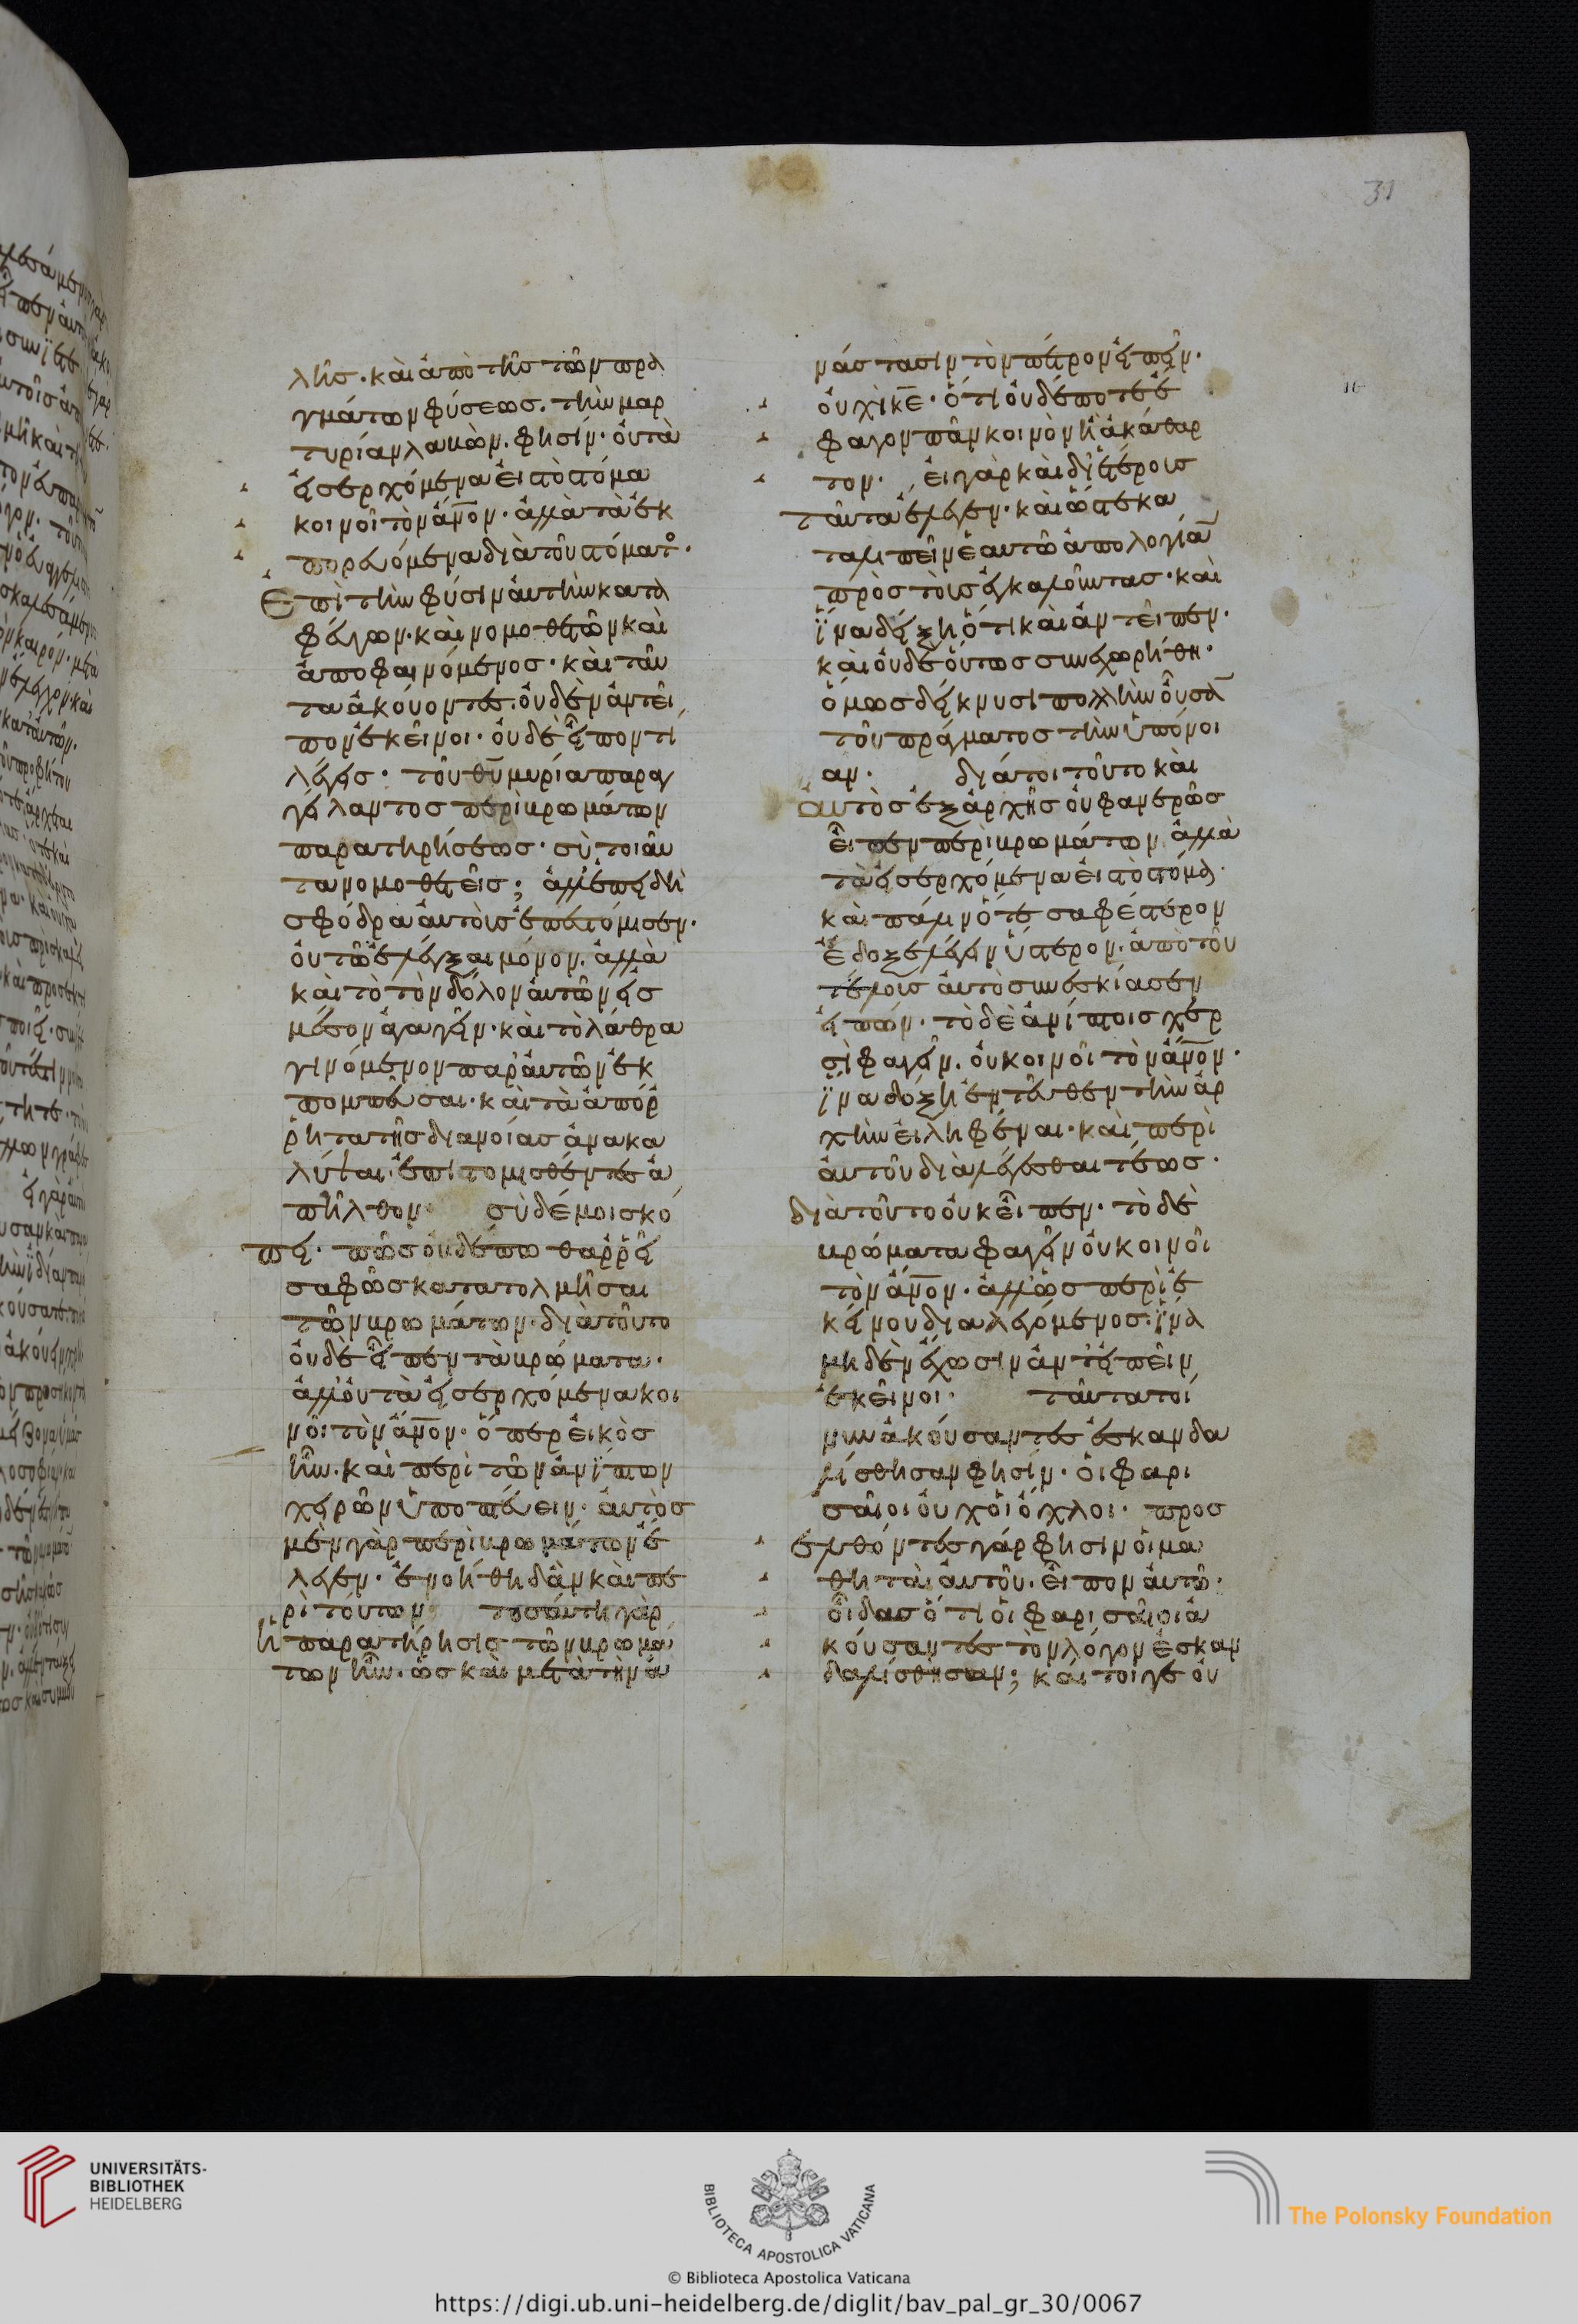 31
λῆς· καὶ ἀπὸ τῆς τῶν πρα
γμάτων φύσεως. τὴν μαρ
τυρίαν λαβὼν. φησίν· οὐ τὰ
εἰσερχόμενα εἰς τὸ στόμα
κοινοῖ τὸν ἄνον· ἀλλὰ τὰ ἐκ
πορευόμενα διὰ τοῦ στόματο.
Ἐπὶ τὴν φύσιν αὐτὴν κατα
φεύγων· καὶ νομοθετῶν καὶ
ἀποφαινόμενος· καὶ ταῦ
τα ἀκούοντες. οὐδὲν ἀντεῖ
πον ἐκεῖνοι· οὐδὲ εἶπον τί
λέγεις· τοῦ θῦ μυρία παραγ
γείλαντος περὶ βρωμάτων
παρατηρήσεως· σὺ τοιαῦ
τα νομοθετεῖς; ἀλλ' ἐπειδὴ
σφόδρα αὐτοὺς ἐπεστόμισεν·
οὐ τῶ ἐλέγξαι μόνον. ἀλλὰ
καὶ τὸ τὸν δόλον αὐτῶν εἰς
μέσον ἀγαγεῖν· καὶ τὸ λάθρα
γινόμενον παρ' αὐτῶν ἐκ
πομπεῦσαι· καὶ τὰ ἀπόρ
ρητα τῆς διανοίας ἀνακα
λύψαι· ἐπιστομισθέντες ἀ
πῆλθον· σὺ δέ μοι σκό
πει· πῶς οὐδέπω θαρρεῖ
σαφῶς κατατολμῆσαι
τῶν βρωμάτων· διὰ τοῦτο
οὐδὲ εἶπεν τὰ βρώματα·
ἀλλ' οὐ τὰ εἰσερχόμενα κοι
νοῖ τὸν ἄνον· ὅπερ εἰκὸς
ἦν· καὶ περὶ τῶν ἀνίπτων
χειρῶν ὑποπτεύειν· αὐτὸς
μὲν γὰρ περὶ βρωμάτων ἔ
λεγεν· ἐνοήθη δ' ἂν καὶ πε
ρὶ τούτων τοσαύτη γὰρ
ἡ παρατήρησις τῶν βρωμά
των ἦν. ὡς καὶ μετὰ τὴν ἀ
νάστασιν τὸν πέτρον εἰπεῖν·
οὐχὶ κε· ὅτι οὐδέποτε ἔ
φαγον πᾶν κοινὸν ἢ ἀκάθαρ
τον· εἰ γὰρ καὶ δι' ἑτέρους
ταῦτα ἔλεγεν· καὶ ὥστε κα
ταλιπεῖν ἑαυτῶ ἀπολογίαν
πρὸς τοὺς ἐγκαλοῦντας· καὶ
ἵνα δείξη ὅτι καὶ ἀντεῖπεν·
καὶ οὐδὲ οὕτως συνεχωρήθη·
ὅμως δείκνυσι πολλὴν οὖσαν
τοῦ πράγματος τὴν ὑπόνοι
αν· διάτοι τοῦτο καὶ
αὐτὸς ἐξ ἀρχῆς οὐ φανερῶς
εἶπεν περὶ βρωμάτων ἀλλὰ
τὰ εἰσερχόμενα εἰς τὸ στόμα·
καὶ πάλιν ὅτε σαφέστερον
ἔδοξε λέγειν ὕστερον. ἀπὸ τοῦ
τέλους αὐτὸ συνεσκίασεν
εἰπὼν· τὸ δὲ ἀνίπτοις χερ
σὶ φαγεῖν. οὐ κοινοῖ τὸν ἄνον·
ἵνα δόξη ἐντεῦθεν τὴν ἀρ
χὴν εἰληφέναι· καὶ περὶ
αὐτοῦ διαλέγεσθαι τέως·
διὰ τοῦτο οὐκ εἶπεν· τὸ δὲ
βρώματα φαγεῖν οὐ κοινοῖ
τὸν ἄνον· ἀλλ' ὡς περὶ ἐ
κείνου διαλεγόμενος· ἵνα
μηδὲν ἔχωσιν ἀντειπεῖν
ἐκεῖνοι· ταῦτα τοί
νυν ἀκούσαντες ἐσκανδα
λίσθησαν φησίν· οἱ φαρι
σαῖοι οὐχ οἱ ὄχλοι· προσ
ελθόντες γάρ φησιν οἱ μα
θηταὶ αὐτοῦ. εἶπον αὐτῶ·
οἶδας ὅτι οἱ φαρισαῖοι ἀ
κούσαντες τὸν λόγον ἐσκαν
δαλίσθησαν; καίτοιγε οὐ
UNIVERSITÄTS-
BIBLIOTHEK
HEIDELBERG
BIBLIOTECA APOSTOLICA VATICANA
© Biblioteca Apostolica Vaticana
The Polonsky Foundation
https://digi.ub.uni-heidelberg.de/diglit/bav_pal_gr_30/0067